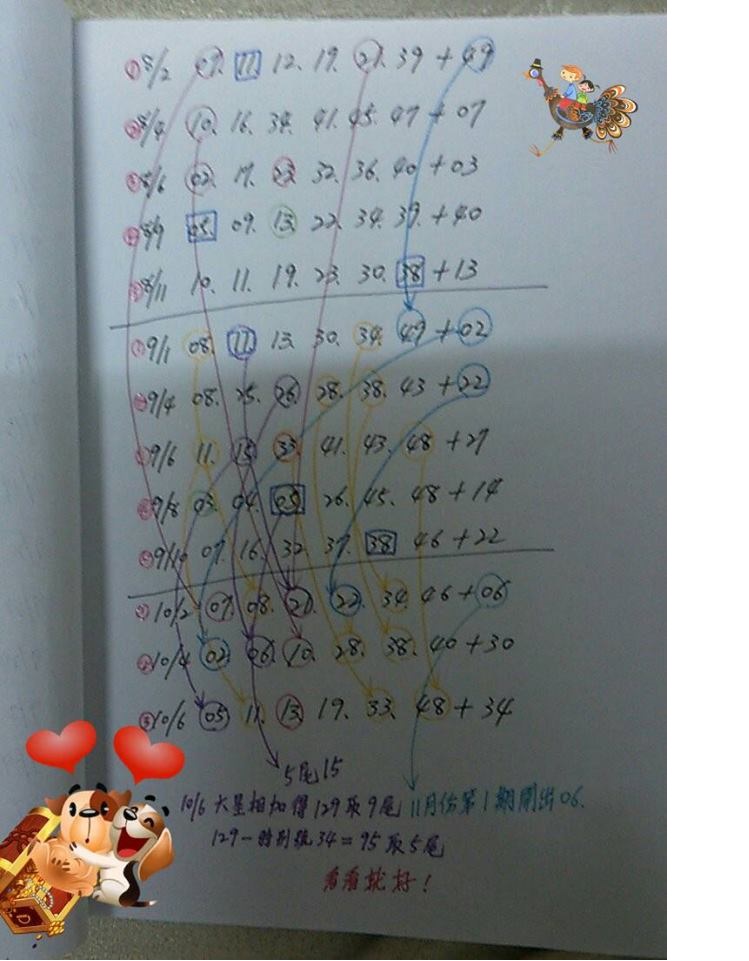 ①8/2 07. 11. 12. 19. 21. 39 + 49
②8/4 10. 16. 34. 41. 45. 47 + 07
③8/6 02. 17. 23. 32. 36. 40 + 03
④8/9 05. 09. 13. 22. 34. 39. + 40
⑤8/11 10. 11. 19. 23. 30. 38 + 13
①9/1 08. 11. 13. 30. 34. 49 + 02
②9/4 08. 25. 26. 28. 38. 43 + 22
③9/6 11. 15. 33. 41. 43. 48 + 27
④9/8 03. 04. 05. 26. 45. 48 + 14
⑤9/10 07. 16. 32. 37. 38. 46 + 22
①10/2 07. 08. 21. 22. 34. 46 + 06
②10/4 02. 06. 10. 28. 38. 40 + 30
③10/6 05. 11. 13. 19. 33. 48 + 34
5尾15
10/6 六星相加得129取9尾 11月份第1期開出06.
129-特別號34=95取5尾
看看就好!